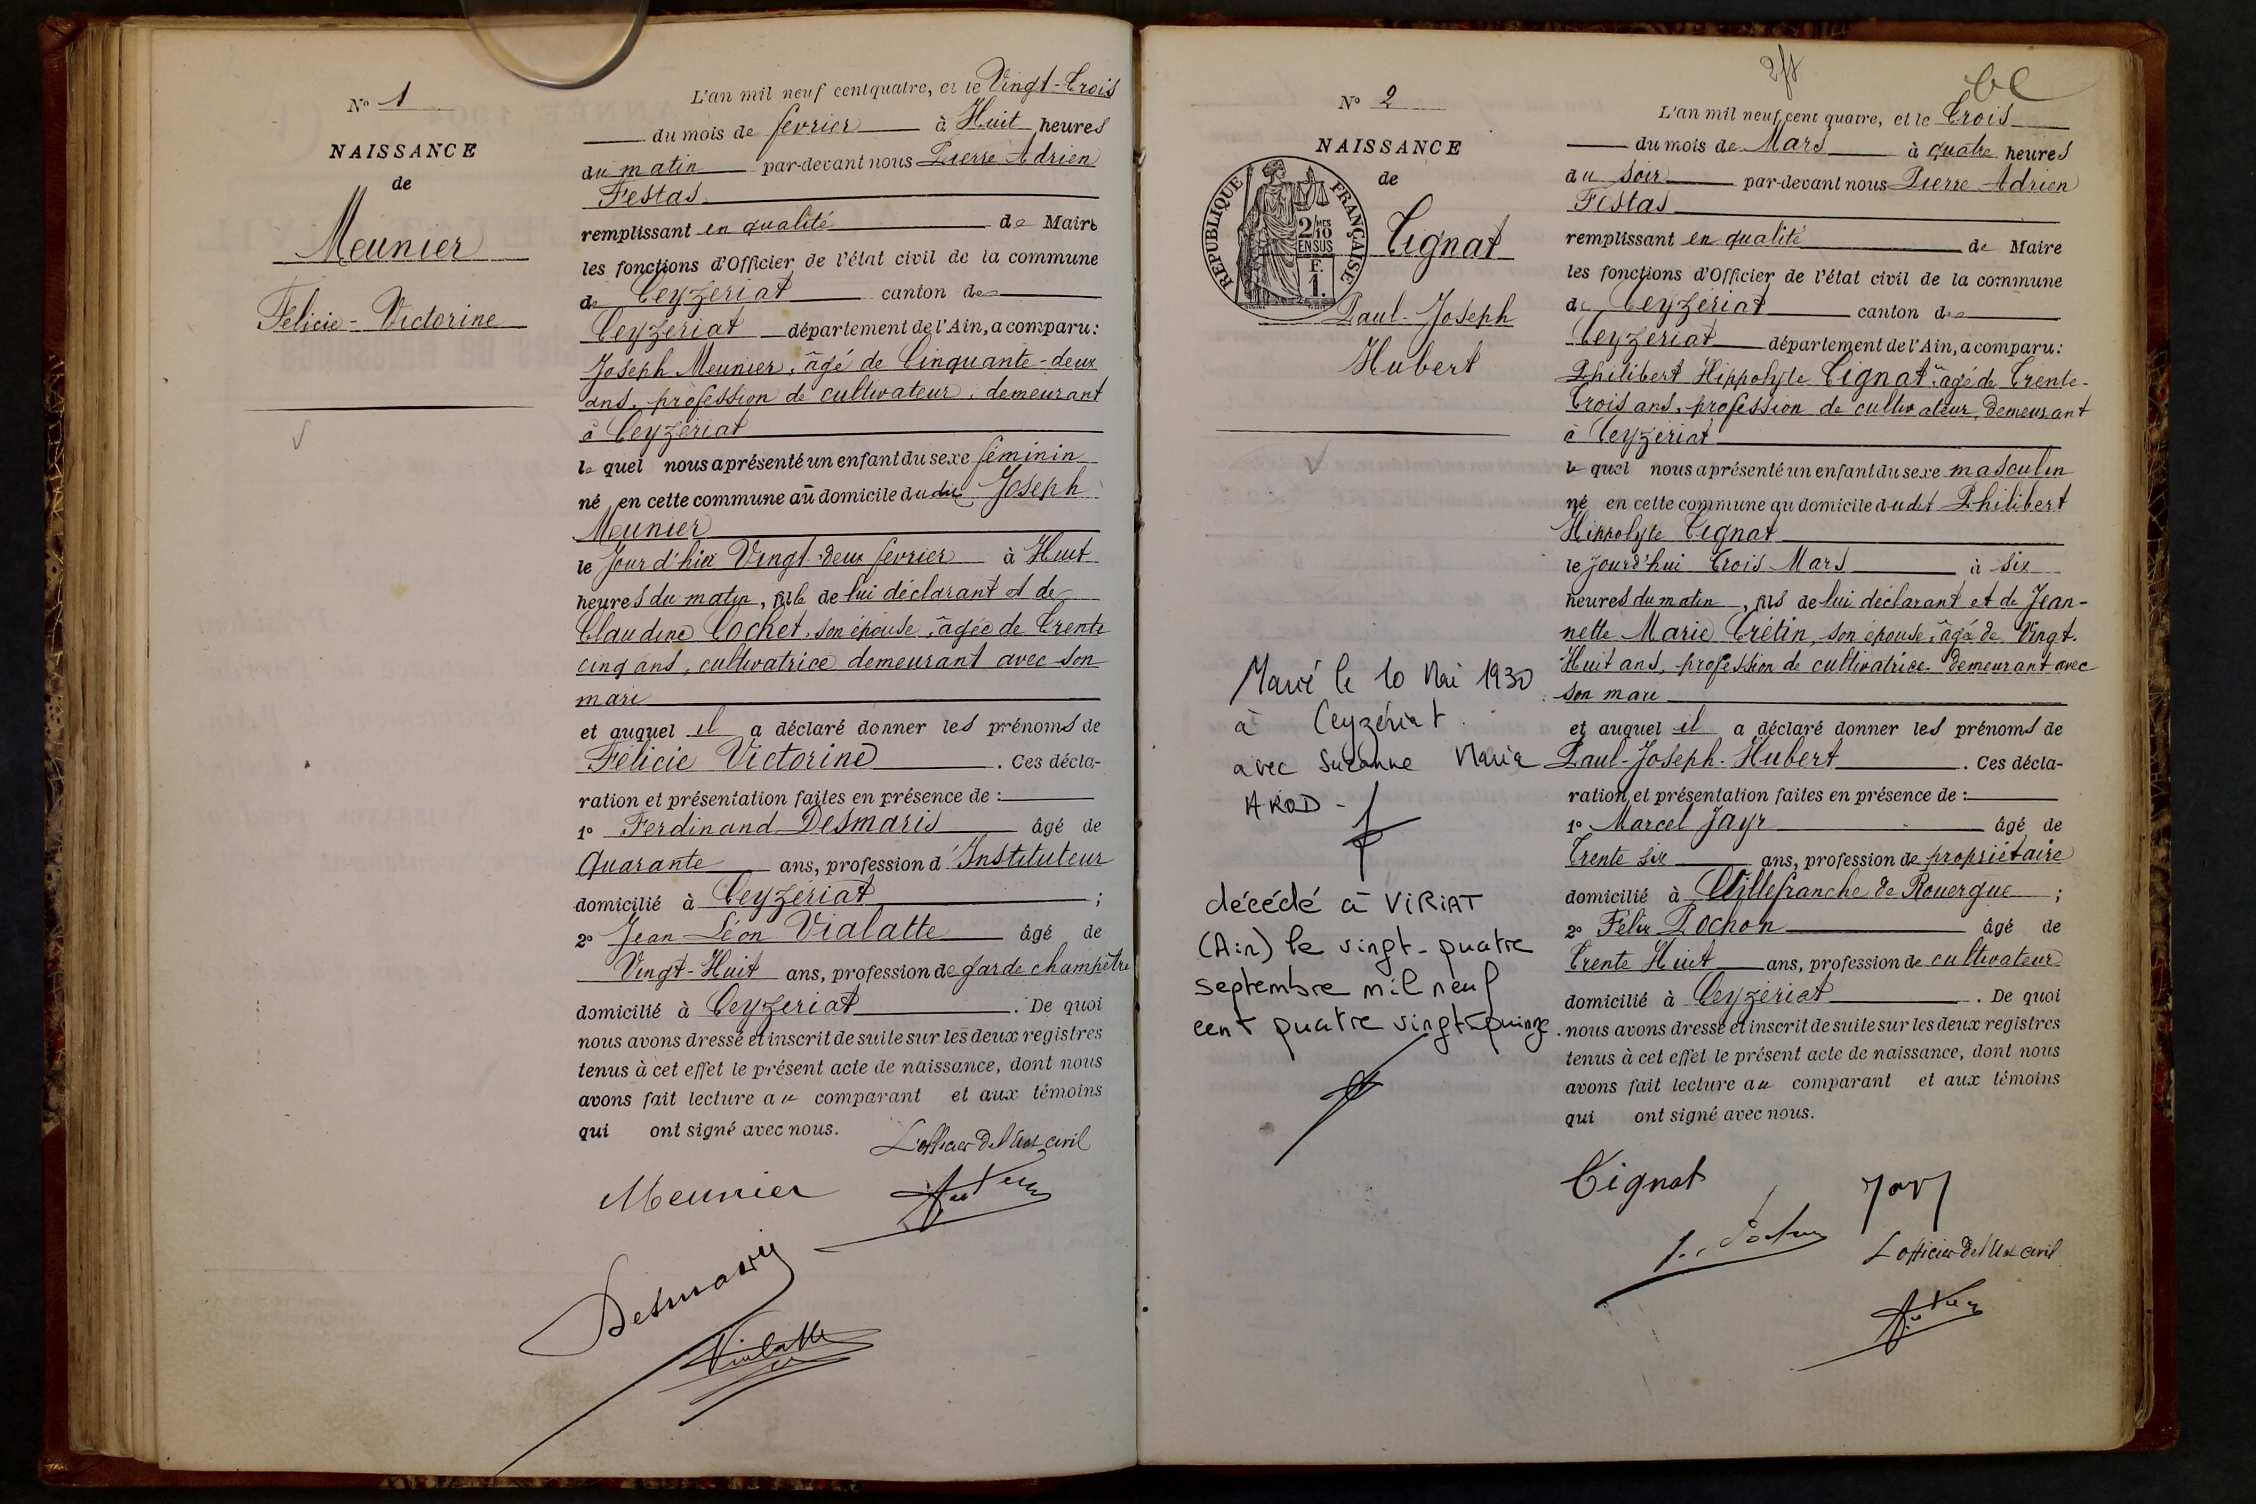 N° 1
NAISSANCE
de
Meunier
Félicie - Victorine
L'an mil neuf cent quatre, et le Vingt-Trois
du mois de février à Huit heures
du matin par-devant nous Pierre Adrien
Festas
remplissant en qualité de Maire
les fonctions d'Officier de l'état civil de la commune
de Ceyzériat canton de
Ceyzériat département de l'Ain, a comparu :
Joseph Meunier, âgé de Cinquante-deux
ans, profession de cultivateur, demeurant
à Ceyzériat
le quel nous a présenté un enfant du sexe féminin
né en cette commune au domicile du dit Joseph
Meunier
le jour d'hier Vingt-deux février à Huit
heures du matin, fille de lui déclarant et de
Claudine Cochet, son épouse, âgée de Trente
cinq ans, cultivatrice demeurant avec son
mari
et auquel il a déclaré donner les prénoms de
Félicie Victorine. Ces décla-
ration et présentation faites en présence de :
1° Ferdinand Desmaris âgé de
Quarante ans, profession d'Instituteur
domicilié à Ceyzériat ;
2° Jean Léon Vialatte âgé de
Vingt-Huit ans, profession de garde champêtre
domicilié à Ceyzériat. De quoi
nous avons dressé et inscrit de suite sur les deux registres
tenus à cet effet le présent acte de naissance, dont nous
avons fait lecture au comparant et aux témoins
qui ont signé avec nous.
L'officier de l'état civil
Meunier
Desmaris
Vialatte
N° 2
NAISSANCE
de
RÉPUBLIQUE FRANÇAISE
2/10 EN SUS
F. 1.
Tignat
Paul-Joseph
Hubert
Marié le 10 Mai 1930
à Ceyzériat.
avec Suzanne Maria
AROD -
décédé à VIRIAT
(Ain) le vingt-quatre
septembre mil neuf
cent quatre vingt-quinze.
L'an mil neuf cent quatre, et le Trois
du mois de Mars à quatre heures
du soir par-devant nous Pierre Adrien
Festas
remplissant en qualité de Maire
les fonctions d'Officier de l'état civil de la commune
de Ceyzériat canton de
Ceyzériat département de l'Ain, a comparu :
Philibert Hippolyte Tignat, âgé de Trente-
Trois ans, profession de cultivateur, demeurant
à Ceyzériat
le quel nous a présenté un enfant du sexe masculin
né en cette commune au domicile du dit Philibert
Hippolyte Tignat
le jourd'hui Trois Mars à six
heures du matin, fils de lui déclarant et de Jean-
nette Marie Crétin, son épouse, âgée de Vingt-
Huit ans, profession de cultivatrice demeurant avec
son mari
et auquel il a déclaré donner les prénoms de
Paul-Joseph-Hubert. Ces décla-
ration et présentation faites en présence de :
1° Marcel Jayr âgé de
Trente six ans, profession de propriétaire
domicilié à Villefranche de Rouergue ;
2° Félix Pochon âgé de
Trente Huit ans, profession de cultivateur
domicilié à Ceyzériat. De quoi
nous avons dressé et inscrit de suite sur les deux registres
tenus à cet effet le présent acte de naissance, dont nous
avons fait lecture au comparant et aux témoins
qui ont signé avec nous.
Tignat
Jayr
L'officier de l'état civil